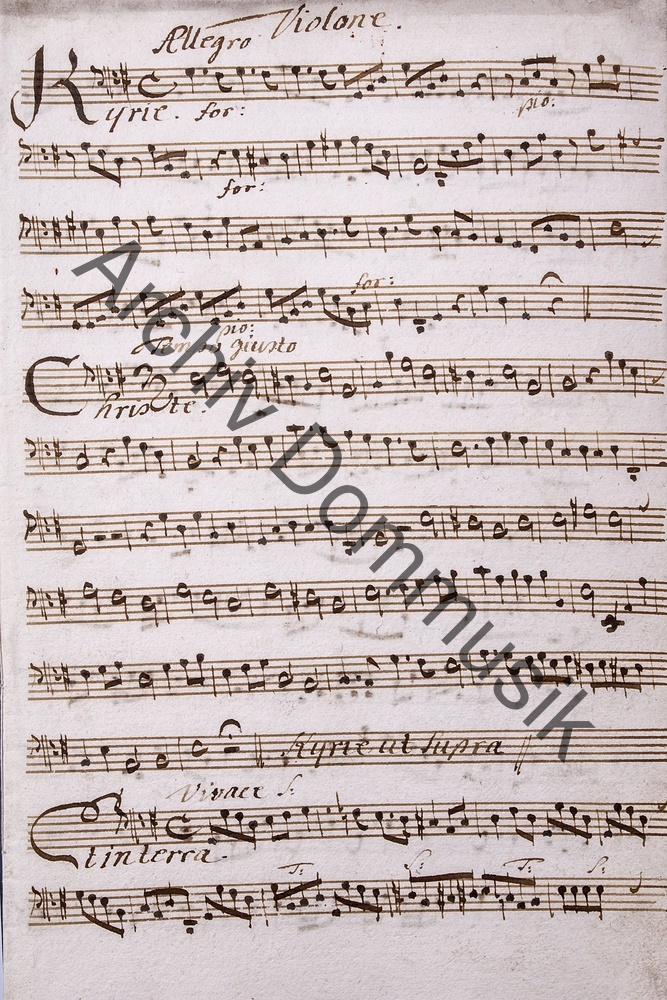 Allegro Violone.
Kyrie. for: pio:
for:
for:
pio:
Tempo giusto
Christe.
Kyrie ut supra
Vivace S:
Et in terra.
T: S: T: S:
Archiv Dommusik